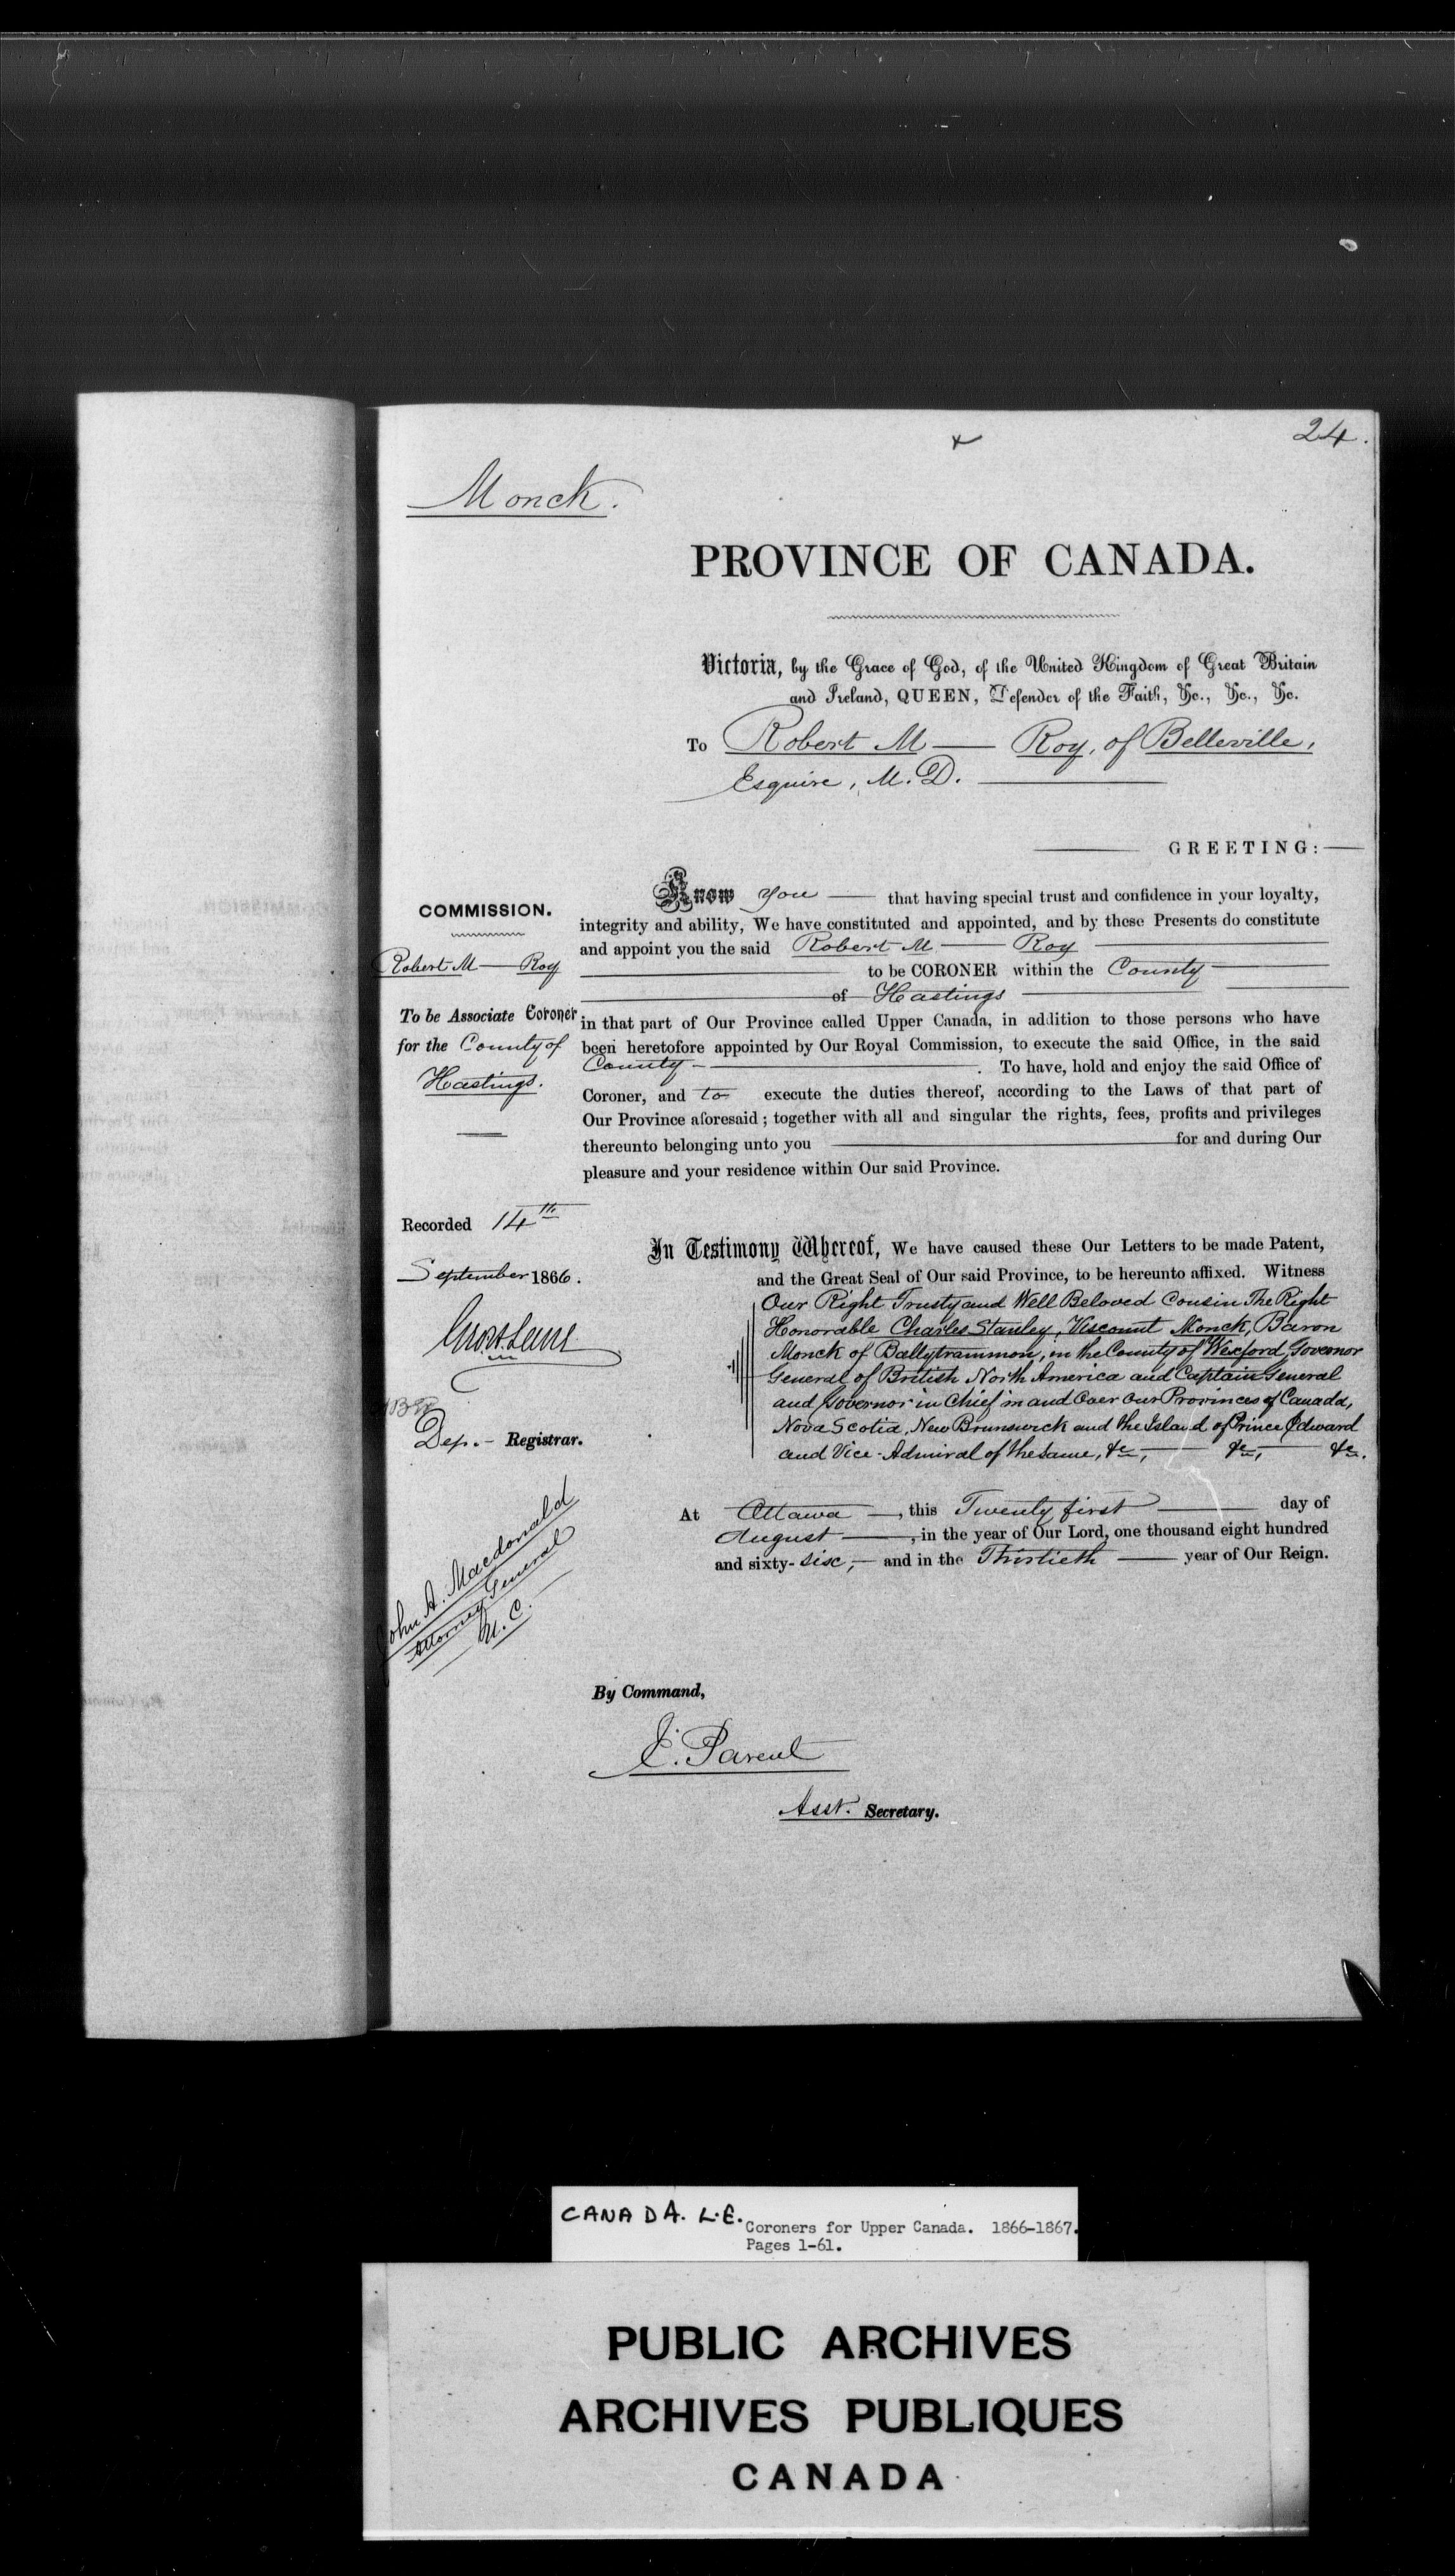 24.
Monck.
PROVINCE OF CANADA.
Victoria, by the Grace of God, of the United Kingdom of Great Britain
and Ireland, QUEEN, Defender of the Faith, &c., &c., &c.
To Robert M — Roy, of Belleville,
Esquire, M. D.
GREETING:
Know you — that having special trust and confidence in your loyalty,
integrity and ability, We have constituted and appointed, and by these Presents do constitute
and appoint you the said Robert M — Roy
to be CORONER within the County
of Hastings
in that part of Our Province called Upper Canada, in addition to those persons who have
been heretofore appointed by Our Royal Commission, to execute the said Office, in the said
County — . To have, hold and enjoy the said Office of
Coroner, and to execute the duties thereof, according to the Laws of that part of
Our Province aforesaid; together with all and singular the rights, fees, profits and privileges
thereunto belonging unto you — for and during Our
pleasure and your residence within Our said Province.
COMMISSION.
Robert M — Roy
To be Associate Coroner
for the County of
Hastings.
Recorded 14th
September 1866.
Dep. - Registrar.
John A. Macdonald
Attorney General
U. C.
In Testimony Whereof, We have caused these Our Letters to be made Patent,
and the Great Seal of Our said Province, to be hereunto affixed. Witness
Our Right Trusty and Well Beloved Cousin The Right
Honorable Charles Stanley, Viscount Monck, Baron
Monck of Ballytrammon, in the County of Wexford, Governor
General of British North America and Captain General
and Governor in Chief in and Over Our Provinces of Canada,
Nova Scotia, New Brunswick and the Island of Prince Edward
and Vice-Admiral of the same, &c, — &c, — &c.
At Ottawa —, this Twenty first — day of
August —, in the year of Our Lord, one thousand eight hundred
and sixty-six, — and in the Thirtieth — year of Our Reign.
By Command,
E. Parent
Asst. Secretary.
CANADA. L.E.
Coroners for Upper Canada. 1866-1867.
Pages 1-61.
PUBLIC ARCHIVES
ARCHIVES PUBLIQUES
CANADA